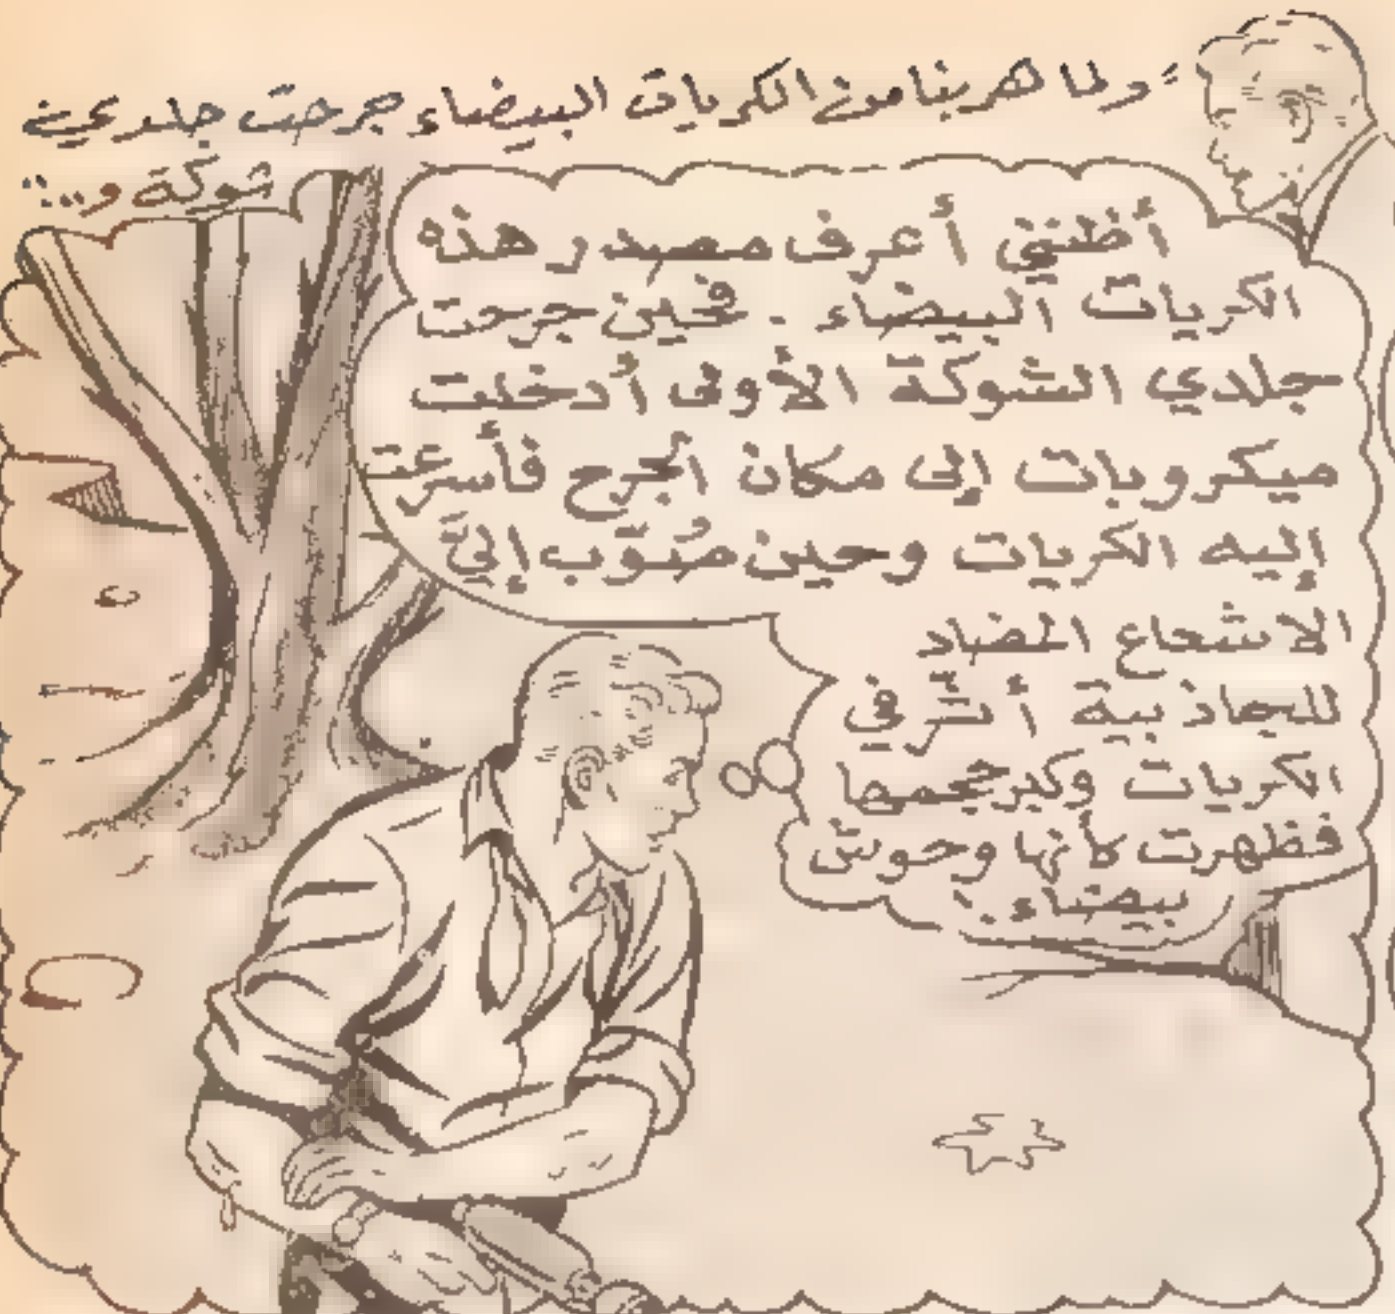 "ولما هربنا من الكريات البيضاء جرحت جلدي
شوكة و..."
أظنني أعرف مصدر هذه
الكريات البيضاء . فحين جرحت
جلدي الشوكة الأولى أدخلت
ميكروبات إلى مكان الجرح فأسرعت
إليه الكريات وحين صُوّب إليَّ
الاشعاع المضاد
للجاذبية أثّر في
الكريات وكبر حجمها
فظهرت كأنها وحوش
بيضاء .